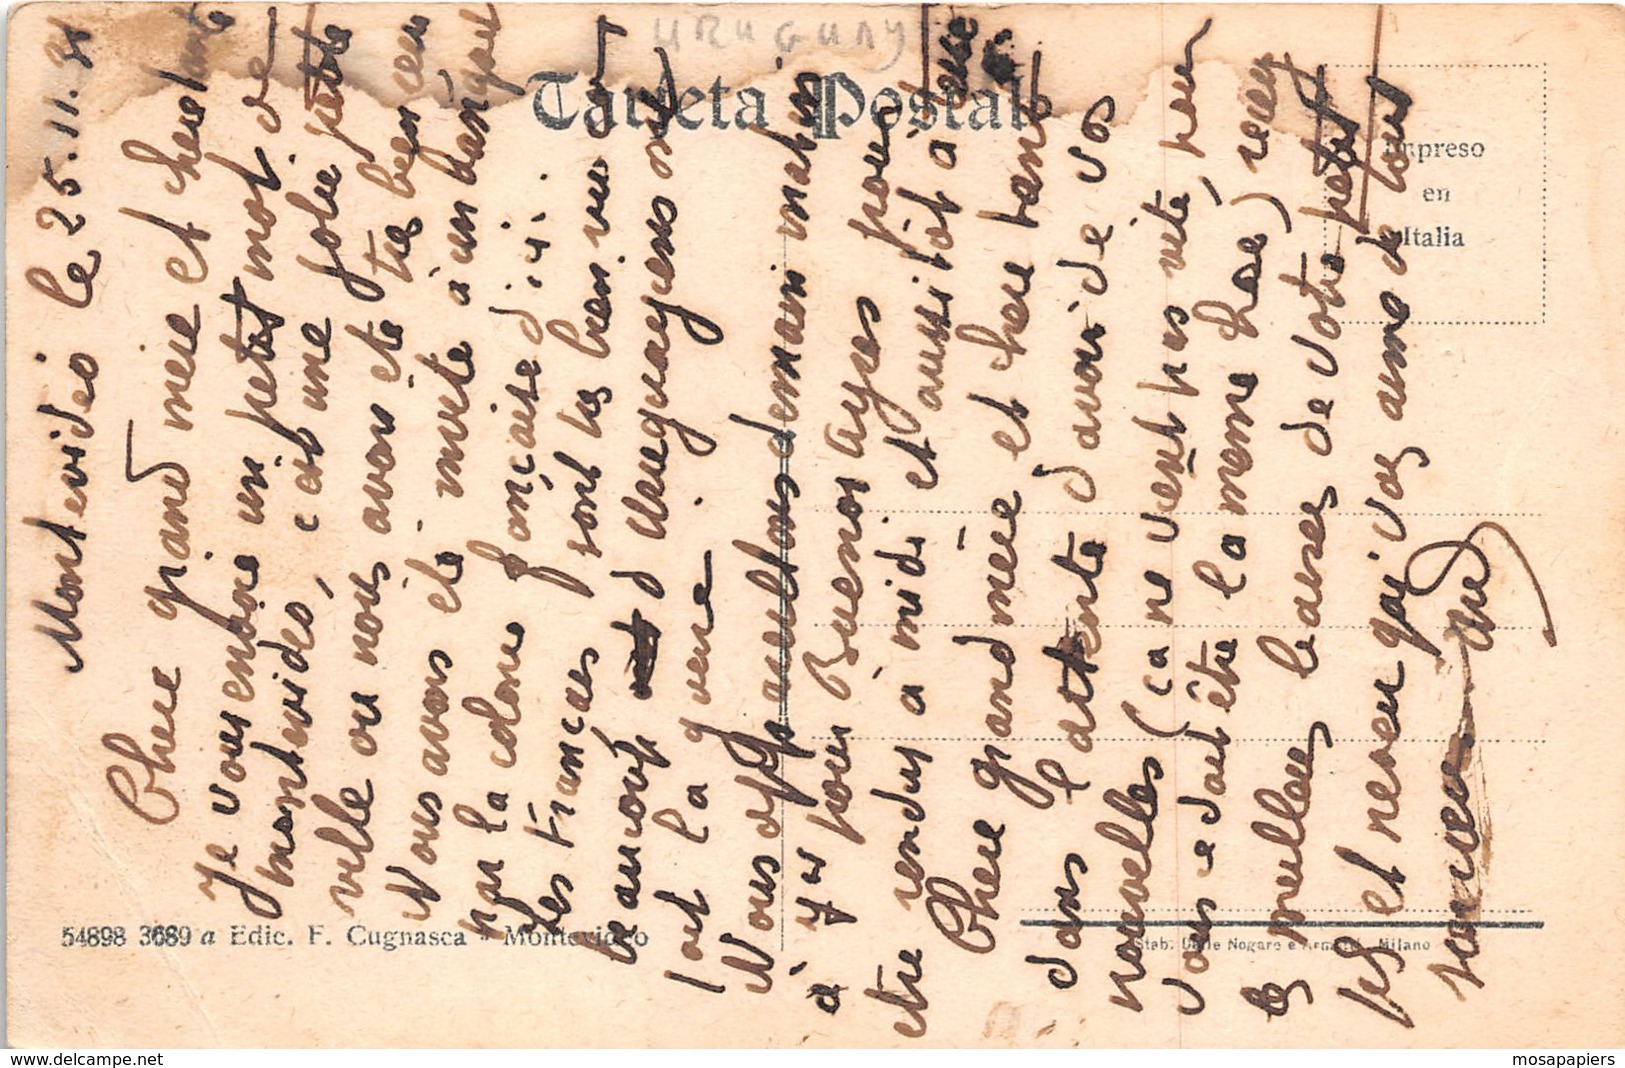 URUGUAY
Tarjeta Postal
Impreso
en
Italia
Montevideo le 25.11.
Chere grand mère et chere tante
Je vous envoie un petit mot de
montevideo, c'est une jolie petite
ville ou nous avons ete tres bien reçu
Nous avons été invite à un banquet
par la colonie française d'ici.
Les Français sont tres bien vu ici
beaucoup d'uruguayens ont
fait la guerre.
Nous quittons demain matin
à 7 h pour Buenos ayres pour
etre rendus à midi et aussitôt à
Chere grand mère et chere tante
dans l'attente d'avoir de vos
nouvelles (ça ne vient pas vite, pour
vous e daut être la meme chose) recevez
les meilleurs baisers de votre petit
fils et neveu qui vous aime de tout
son cœur
54898 3689 a Edic. F. Cugnasca - Montevideo
Stab. Dalle Nogare e Armetti - Milano
www.delcampe.net
mosapapiers